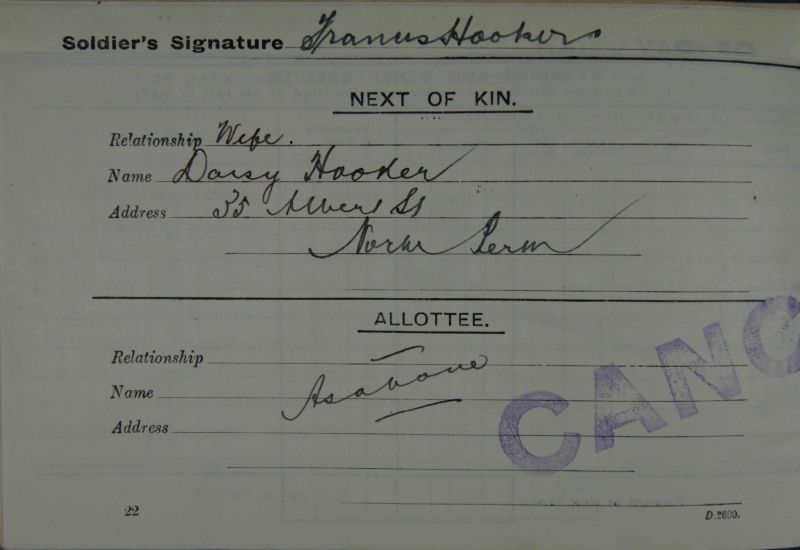 Soldier's Signature Francis Hooker
NEXT OF KIN.
Relationship Wife.
Name Daisy Hooker
Address 35 Albert St
North Perth
ALLOTTEE.
Relationship
Name As above
Address
CANC
22
D.2690.